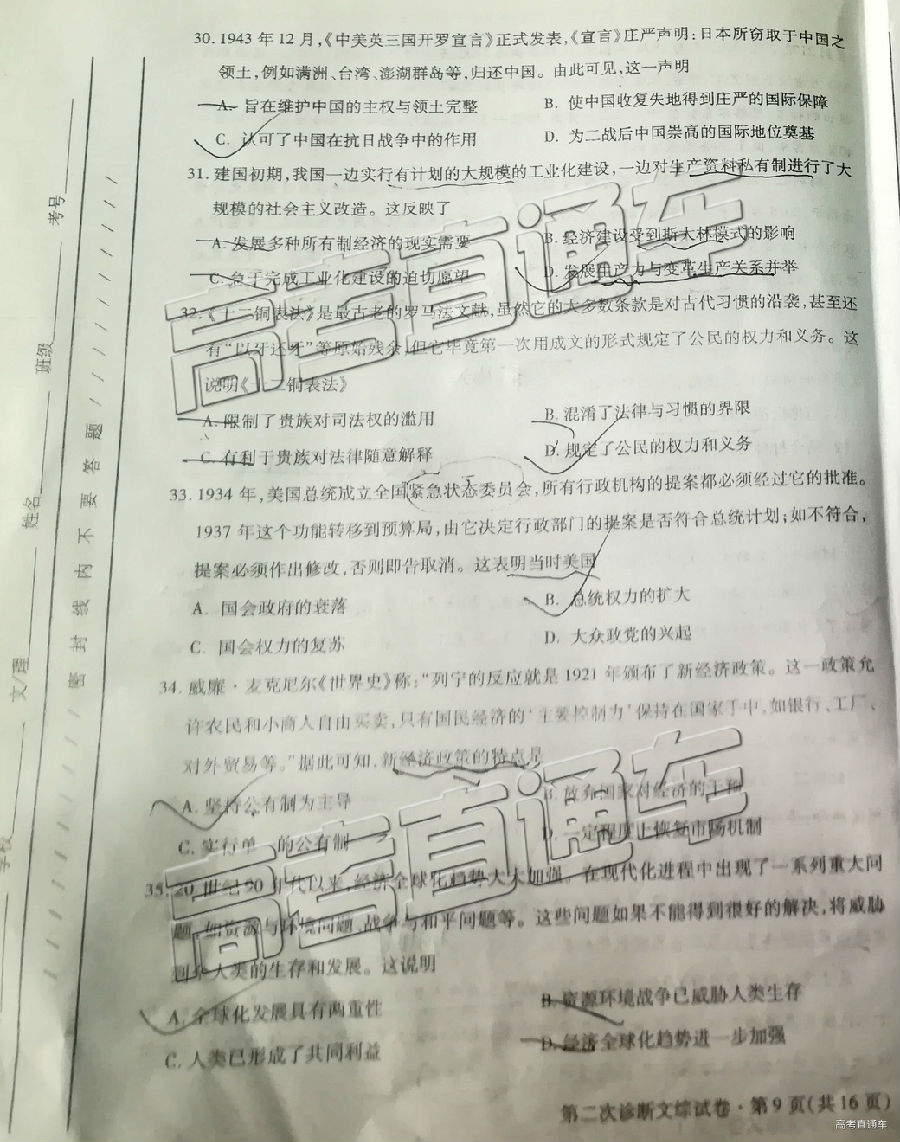 30. 1943 年 12 月，《中美英三国开罗宣言》正式发表，《宣言》庄严声明：日本所窃取于中国之
领土，例如满洲、台湾、澎湖群岛等，归还中国。由此可见，这一声明
A. 旨在维护中国的主权与领土完整 B. 使中国收复失地得到庄严的国际保障
C. 认可了中国在抗日战争中的作用 D. 为二战后中国崇高的国际地位奠基
31. 建国初期，我国一边实行有计划的大规模的工业化建设，一边对生产资料私有制进行了大
规模的社会主义改造。这反映了
A. 发展多种所有制经济的现实需要 B. 经济建设受到斯大林模式的影响
C. 急于完成工业化建设的迫切愿望 D. 发展生产力与变革生产关系并举
32. 《十二铜表法》是最古老的罗马法文献，虽然它的大多数条款是对古代习惯的沿袭，甚至还
有“以牙还牙”等原始残余，但它毕竟第一次用成文的形式规定了公民的权力和义务。这
说明《十二铜表法》
A. 限制了贵族对司法权的滥用 B. 混淆了法律与习惯的界限
C. 有利于贵族对法律随意解释 D. 规定了公民的权力和义务
33. 1934 年，美国总统成立全国紧急状态委员会，所有行政机构的提案都必须经过它的批准。
1937 年这个功能转移到预算局，由它决定行政部门的提案是否符合总统计划；如不符合，
提案必须作出修改，否则即告取消。这表明当时美国
A. 国会政府的衰落 B. 总统权力的扩大
C. 国会权力的复苏 D. 大众政党的兴起
34. 威廉·麦克尼尔《世界史》称：“列宁的反应就是 1921 年颁布了新经济政策。这一政策允
许农民和小商人自由买卖，只有国民经济的‘主要控制力’保持在国家手中，如银行、工厂、
对外贸易等。”据此可知，新经济政策的特点是
A. 坚持公有制为主导 B. 放弃国家对经济的干预
C. 实行单一的公有制 D. 一定程度上恢复市场机制
35. 20 世纪90 年代以来，经济全球化趋势大大加强。在现代化进程中出现了一系列重大问
题，如资源与环境问题、战争与和平问题等。这些问题如果不能得到很好的解决，将威胁
到全人类的生存和发展。这说明
A. 全球化发展具有两重性 B. 资源环境战争已威胁人类生存
C. 人类已形成了共同利益 D. 经济全球化趋势进一步加强
第二次诊断文综试卷·第 9 页(共 16 页)
考号
班级
姓名
文/理
学校
密 封 线 内 不 要 答 题
高考直通车
高考直通车
高考直通车